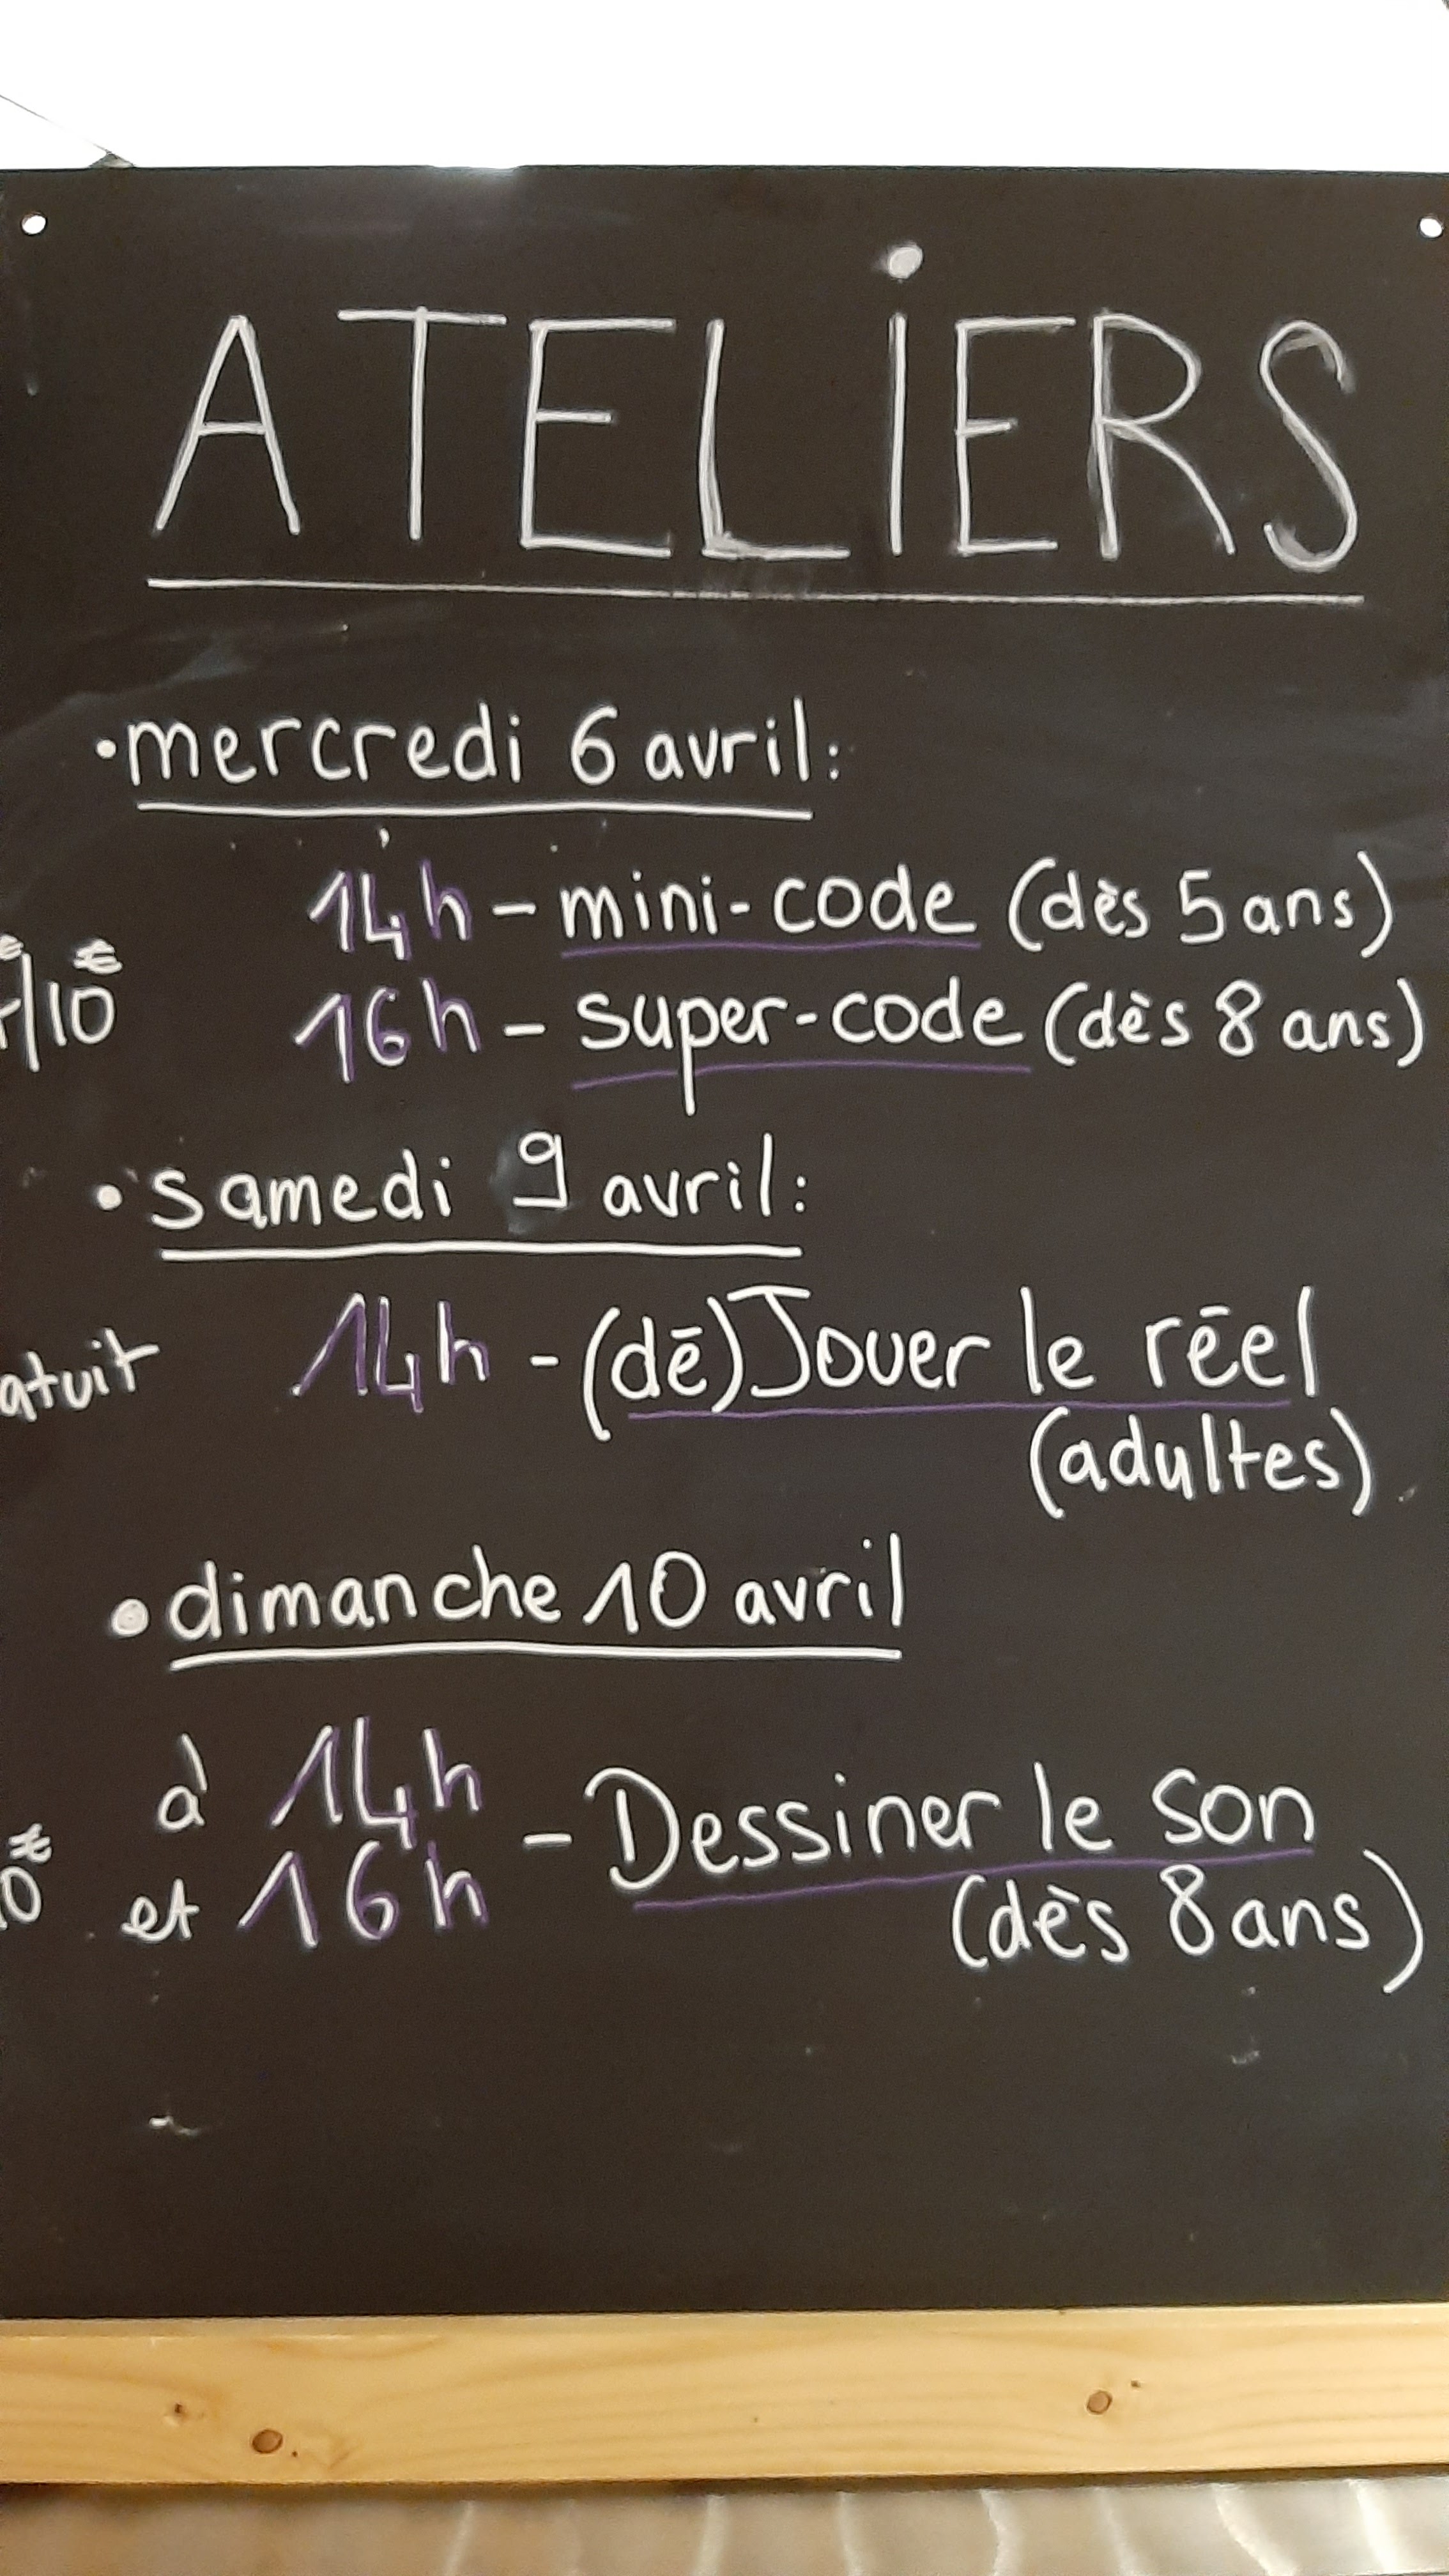 ATELiERS
• mercredi 6 avril:
14h - mini-code (dès 5 ans)
/10€
16h - super-code (dès 8 ans)
• samedi 9 avril:
14h - (dé)Jouer le réel
(adultes)
• dimanche 10 avril
à 14h
et 16h - Dessiner le son
(dès 8 ans)